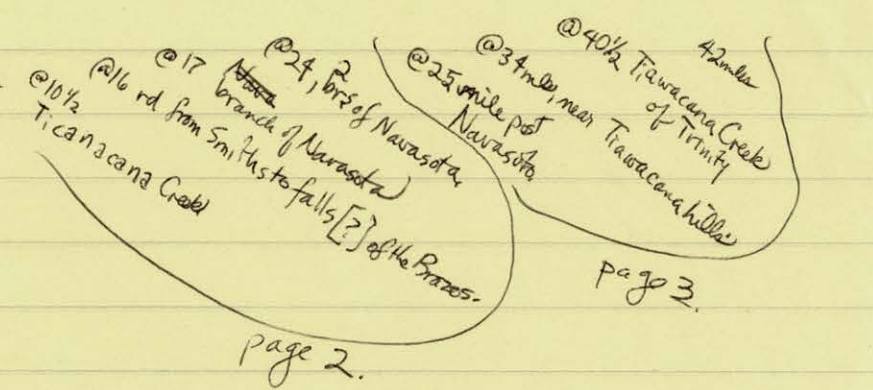 @10½
Ticanacana Creek
@16 rd from Smiths to falls [?] of the Brazos.
@17 Nava
branch of Navasota
@24, 2 brs of Navasota,
page 2.
@25 mile post
Navasota
@34 mls, near Tiawacana hills
@40½ Tiawacana Creek
of Trinity
42 mls
page 3.